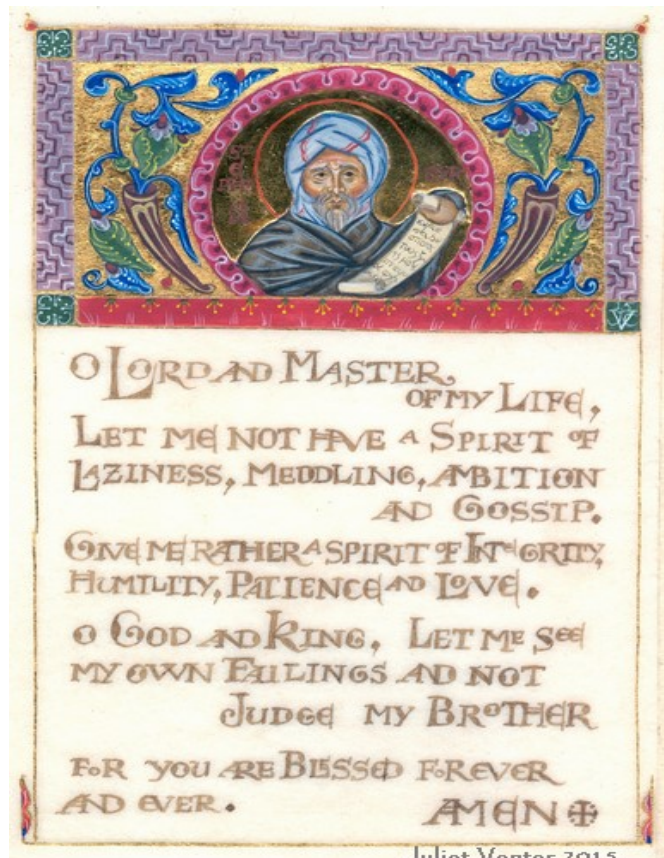 O LORD AND MASTER
OF MY LIFE,
LET ME NOT HAVE A SPIRIT OF
LAZINESS, MEDDLING, AMBITION
AND GOSSIP.
GIVE ME RATHER A SPIRIT OF INTEGRITY,
HUMILITY, PATIENCE AND LOVE.
O GOD AND KING, LET ME SEE
MY OWN FAILINGS AND NOT
JUDGE MY BROTHER
FOR YOU ARE BLESSED FOREVER
AND EVER. AMEN
Juliet Venter 2015